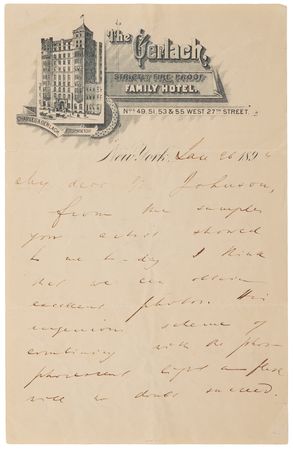 The Gerlach,
STRICTLY FIRE PROOF
FAMILY HOTEL.
Nos 49, 51, 53 & 55 WEST 27TH STREET.
CHARLES A. GERLACH
PROPRIETOR
New York, Jan 26 189
My dear Mr. Johnson,
from the samples
your artist showed
to me to-day I think
that we can obtain
excellent photos. His
ingenious scheme of
combining with the phos-
phorescent light a flash
will no doubt succeed.